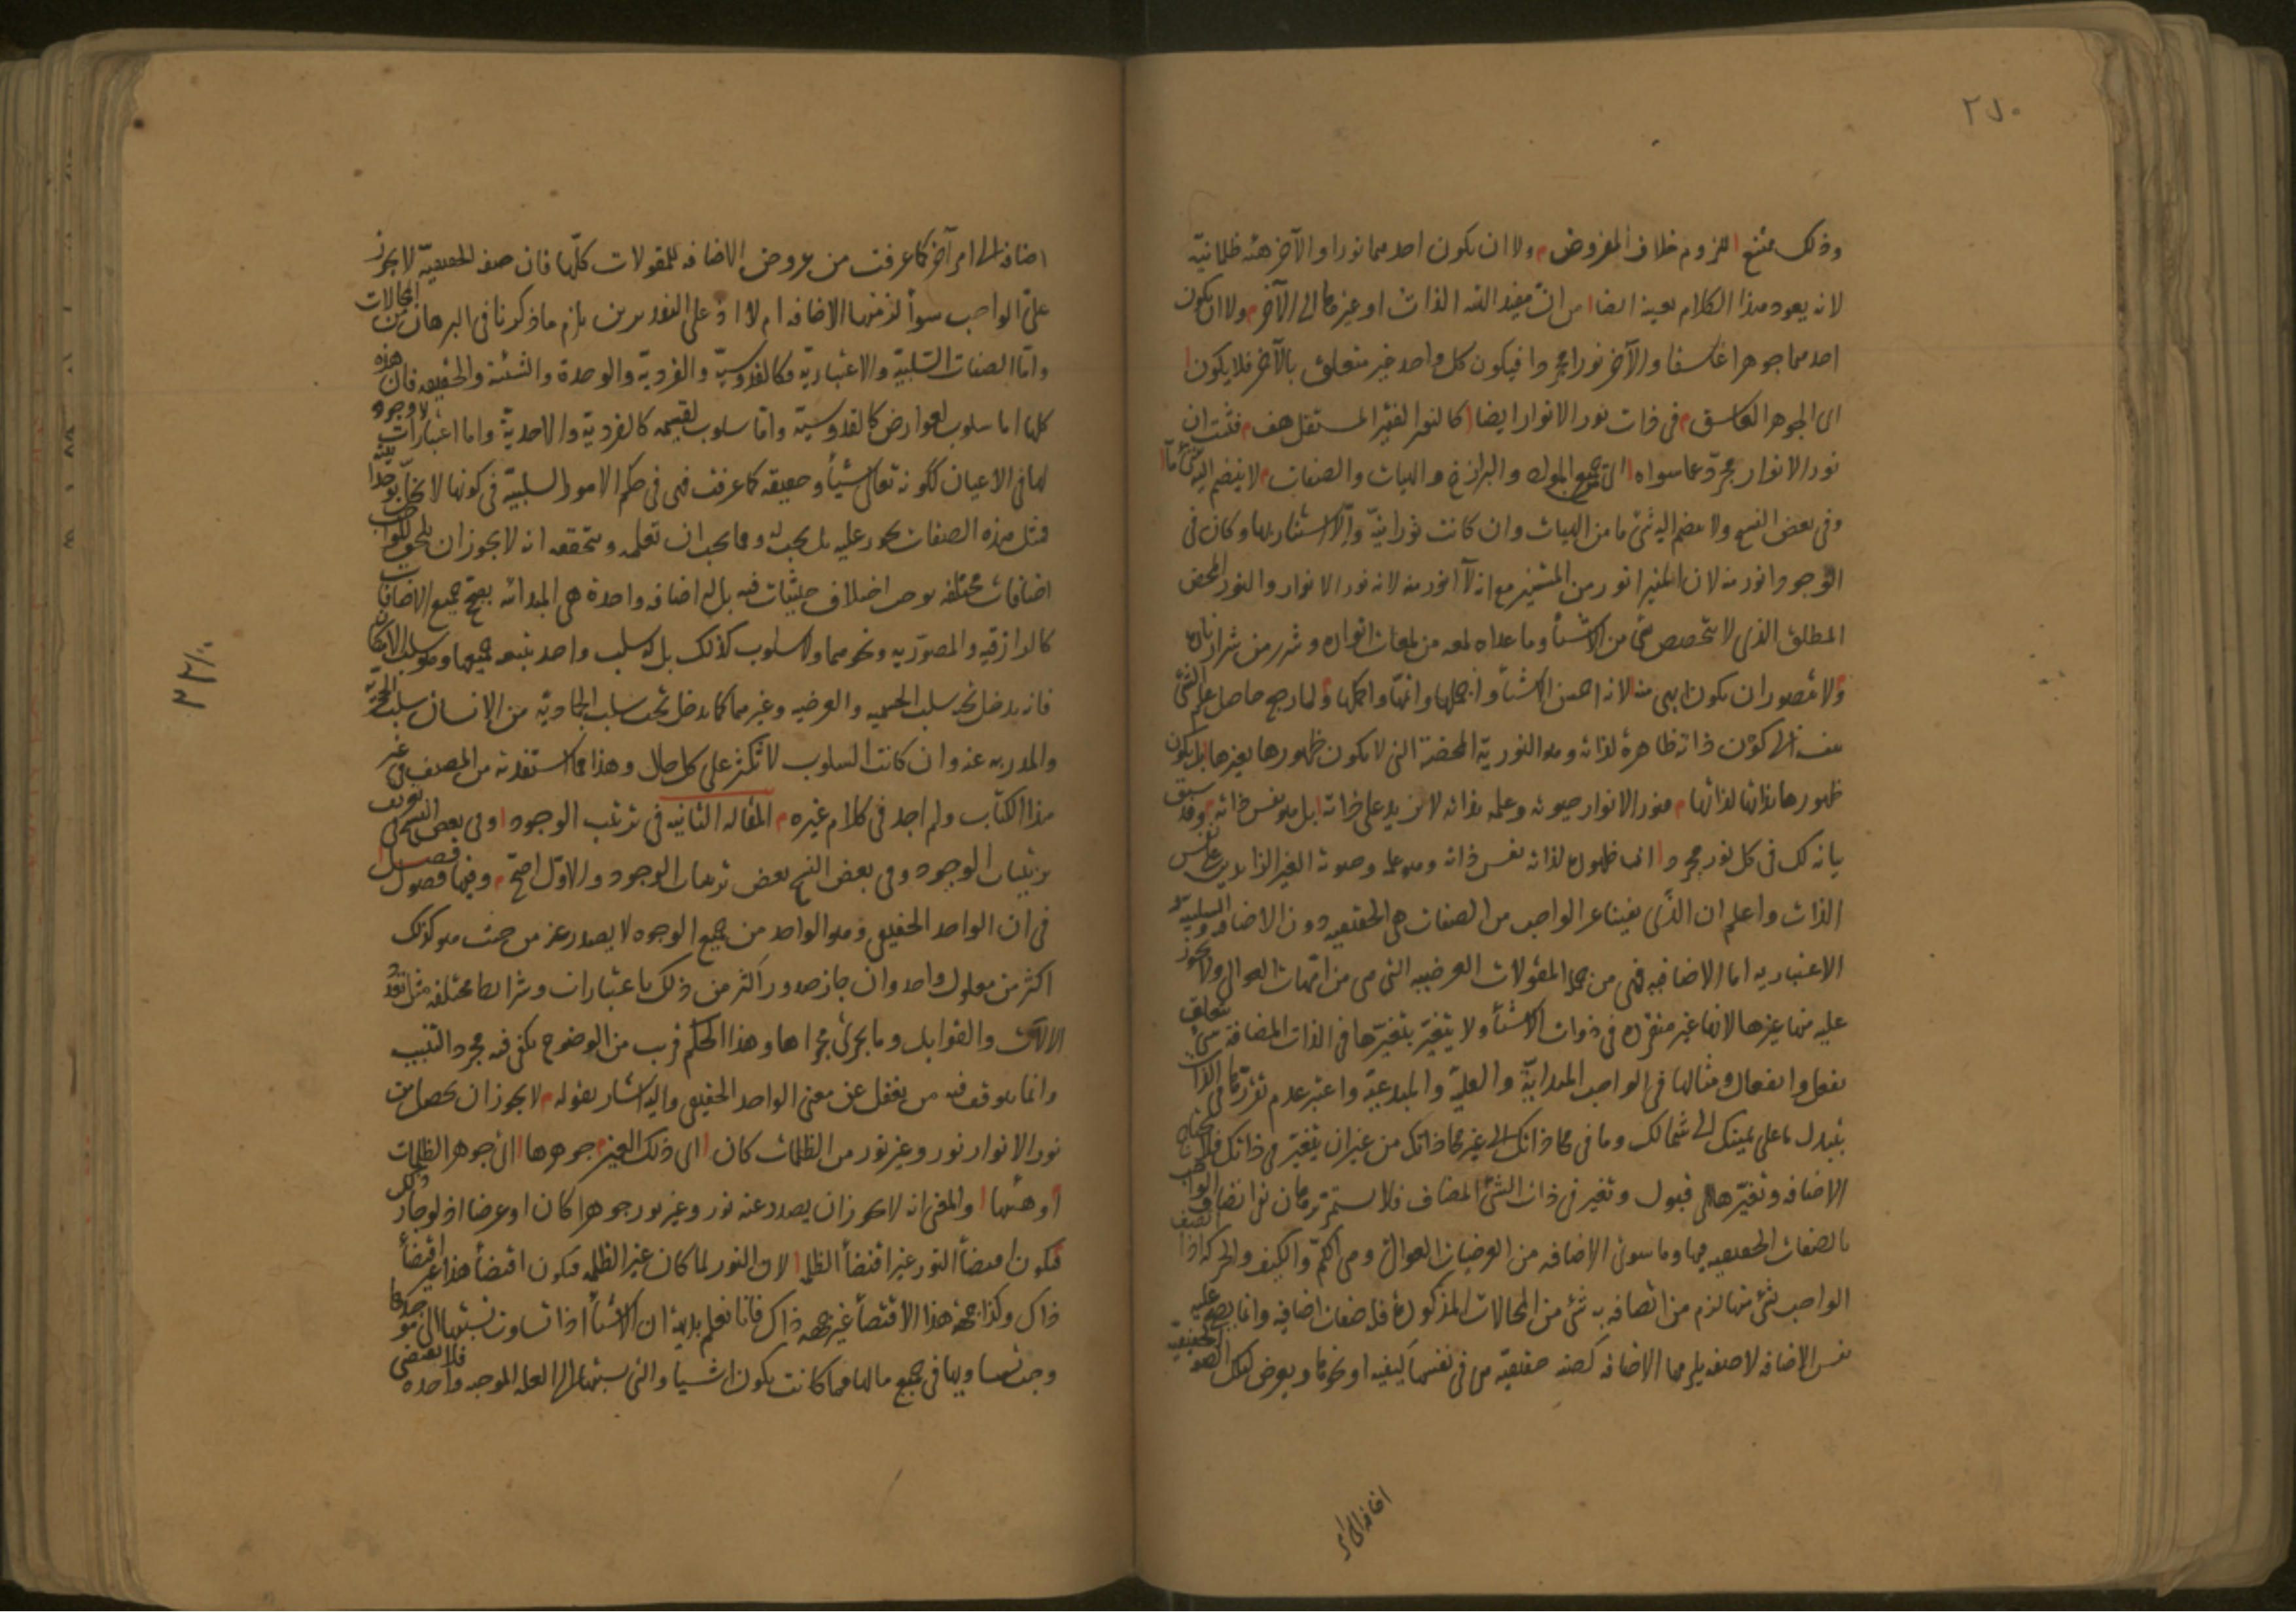 ٢٨٠
وذلك ممتنع للزوم خلاف المفروض ولا ان يكون احدهما نورا والآخر هيئة ظلمانية
لانه يعود هذا الكلام بعينه ايضا من ان مفيد الذات او غيرها الى الآخر ولا ان يكون
احدهما جوهرا غاسقا والآخر نورا مجردا فيكون كل واحد غير متعلق بالآخر فلا يكون
اى الجوهر الغاسق فى ذات نور الانوار ايضا كالنور الغير المستقل هف فثبت ان
نور الانوار مجرد عما سواه اى جميع والبرازخ والهيات والصفات لا ينضم اليه شئ ما
وفى بعض النسخ ولا ينضم اليه شئ ما من الهيات وان كانت نورانية والا استنار بها وكان فى
الوجود انور منه لان المنير انور من المستنير مع انه لا انور منه لانه نور الانوار والنور المحض
المطلق الذى لا يتخصص بشئ من الاشياء وما عداه لمعة من لمعات انواره وشرر من شرار ناره
ولا يتصور ان يكون ابهى منه لانه احسن الاشياء واجملها واتمها واكملها ولما رجع حاصل علم الشئ
بنفسه الى كون ذاته ظاهرة لذاته وهو النورية المحضة التى لا يكون ظهورها بغيرها بل يكون
ظهورها بذاتها لذاتها فنور الانوار حيوته وعلمه بذاته لا يزيد على ذاته بل هو نفس ذاته وقد سبق
بيانه لك فى كل نور مجرد ان ظهوره لذاته نفس ذاته وهو علمه وحيوته الغير الزايدين على نفس
الذات واعلم ان الذى نفينا عن الواجب من الصفات هى الحقيقيه دون الاضافيه والسلبية
الاعتباريه اما الاضافيه فهى من جملة المقولات العرضيه التى هى من امهات العوالى ولا يجوز
عليه منها غيرها لانها غير متقررة فى ذوات الاشياء ولا يتغير بتغيرها فى الذات المضافة شئ يتعلق
بفعل وانفعال ومثالها فى الواجب المبدائية والعلية والمبدعية واعتبر عدم تقررها فى الذات
بتبدل ما على يمينك الى شمالك وما فى محاذاتك الى غير محاذاتك من غير ان يتغير فى ذاتك فلا يحتاج
الاضافه وتغيرها الى قبول وتغير فى ذات الشئ المضاف فلا يستمر برهان نفى اتصاف الواجب
بالصفات الحقيقيه فيها وما سوى الاضافه من العرضيات العوالى وهى الكم والكيف والحركة اذا اتصف
الواجب بشئ منها لزم من اتصافه به شئ من المحالات المذكورة فله صفات اضافيه وانما يصح عليه
نفس الاضافه لا صفه يلزمها الاضافه كصفه حقيقية هى فى نفسها كيفيه او نحوها ويعرض لتلك الصفة الحقيقية
اضافه الى امر
اضافه الى امر آخر كما عرفت من عروض الاضافه للمقولات كلها فان صفه الحقيقية لا يجوز
على الواجب سواء لزمتها الاضافه ام لا اذ على التقديرين يلزم ما ذكرنا فى البرهان من المحالات
واما الصفات السلبية والاعتبارية فكالقدوسية والفردية والوحدة والشيئية والحقيقه فان هذه
كلها اما سلوب لعوارض كالقدوسية واما سلوب لقسمه كالفردية والاحدية واما اعتبارات لا وجود
لها فى الاعيان ككونه تعالى شيئا وحقيقه كما عرفت فهى فى حكم الامور السلبية فى كونها لا
فمثل هذه الصفات يجوز عليه بل يجب له ومما يجب ان تعلمه وتتحققه انه لا يجوز ان يلحق الواجب
اضافات مختلفه يوجب اختلاف حيثيات فيه بل له اضافه واحدة هى المبدائيه يصحح جميع الاضافات
كالرازقيه والمصوريه ونحوهما ولا سلوب كذلك بل له سلب واحد يتبعه جميعها وهو سلب الامكان
فانه يدخل تحته سلب الجسميه والعرضيه وغيرهما كما يدخل تحت سلب الجمادية من الانسان سلب الحجرية
والمدريه عنه وان كانت السلوب لا تتكثر على كل حال وهذا مما استفدته من المصنف فى غير
هذا الكتاب ولم اجد فى كلام غيره المقاله الثانيه فى ترتيب الوجود وفى بعض النسخ فى تعريف
ترتيبات الوجود وفى بعض النسخ بعض ترتيبات الوجود والاول اصح وفيها فصول فصل
فى ان الواحد الحقيقى وهو الواحد من جميع الوجوه لا يصدر عنه من حيث هو كذلك
اكثر من معلول واحد وان جاز صدور اكثر من ذلك باعتبارات وشرايط مختلفه مثل تعدد
الالات والقوابل وما يجرى مجراها وهذا الحكم قريب من الوضوح يكفى فيه مجرد التنبيه
وانما يتوقف فيه من يغفل عن معنى الواحد الحقيقى واليه اشار بقوله لا يجوز ان يحصل من
نور الانوار نور وغير نور من الظلمات كان اى ذلك الغير جوهرها اى جوهر الظلمات
او هيئتها والمعنى انه لا يجوز ان يصدر عنه نور وغير نور جوهرا كان او عرضا اذ لو جاز ذلك
فيكون اقتضاء النور غير اقتضاء الظلمه لان النور لما كان غير الظلمه فيكون اقتضاء هذا غير اقتضاء
ذاك وكذا جهة هذا الاقتضاء غير جهه ذاك فانا نعلم بديهة ان الاشياء اذا تساوت نسبتها الى موجدها
وحيث تساويها فى جميع مالها فما كانت يكون اشياء والتى نسبتها الى العله الموجبه واحده فلا يقتضى